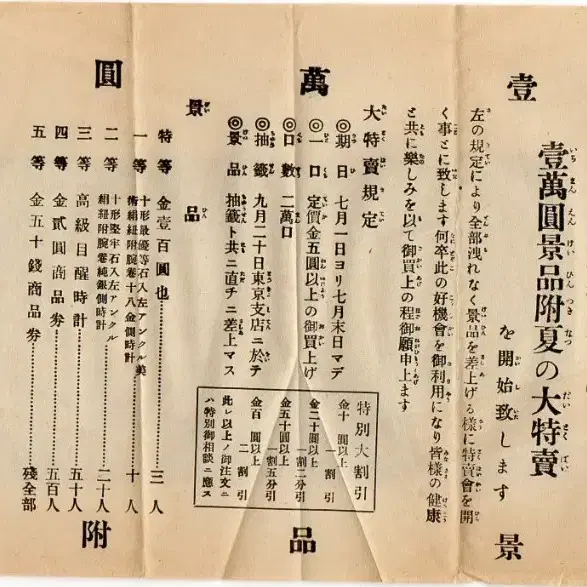 壹萬圓景品附夏の大特賣
を開始致します
左の規定により全部洩れなく景品を差上げる様に特賣會を開
く事とに致します何卒此の好機會を御利用になり皆様の健康
と共に樂しみを以て御買上の程御願申上ます
大特賣規定
◎期日 七月一日ヨリ七月末日マデ
◎一口 定價金五圓以上の御買上げ
◎口數 二萬口
◎抽籤 九月二十日東京支店ニ於テ
◎景品 抽籤ト共ニ直チニ差上マス
特別大割引
金十圓以上 一割引
金二十圓以上 一割二分引
金五十圓以上 一割五分引
金百圓以上 二割引
此レ以上ノ御注文ニ
ハ特別御相談ニ應ス
景品
特等 金壹百圓也 三人
一等 十形最優等石入左アンクル美
術絹紐附腕卷十八金側時計 十人
二等 十形堅牢石入左アンクル
絹紐附腕卷純銀側時計 二十人
三等 高級目醒時計 五十人
四等 金貳圓商品券 五百人
五等 金五十錢商品券 殘全部
壹萬圓
景品附